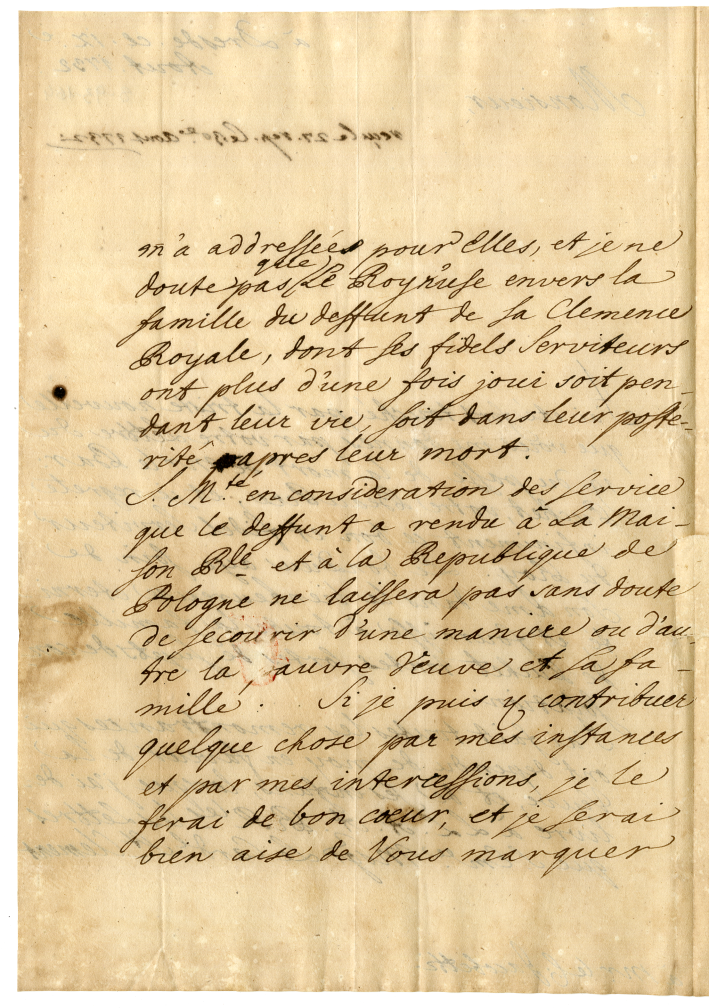 m'a addressées pour Elles, et je ne
doute pas que Le Roy n'use envers la
famille du deffunt de sa Clemence
Royale, dont ses fidels Serviteurs
ont plus d'une fois joui soit pen-
dant leur vie, soit dans leur poste-
rité apres leur mort.
S. M.té en consideration des service
que le deffunt a rendu à La Mai-
son Rle et à la Republique de
Pologne ne laissera pas sans doute
de secourir d'une maniere ou d'au-
tre la pauvre Veuve et sa fa-
mille. Si je puis y contribuer
quelque chose par mes instances
et par mes intercessions, je le
ferai de bon cœur, et je serai
bien aise de Vous marquer